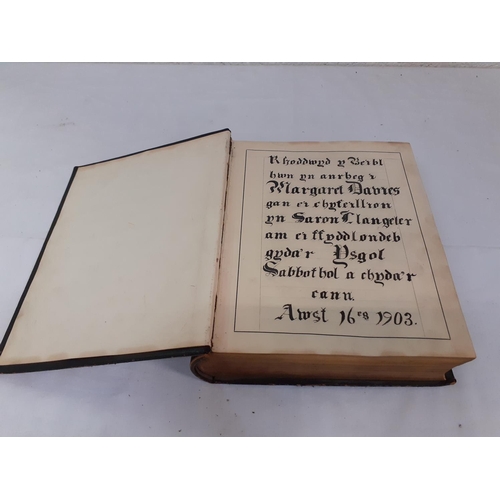 Rhoddwyd y Beibl
hwn yn anrheg i
Margaret Davies
gan ei chyfeillion
yn Saron Llangeler
am ei ffyddlondeb
gyda'r Ysgol
Sabbothol a chyda'r
cann.
Awst 16eg 1903.